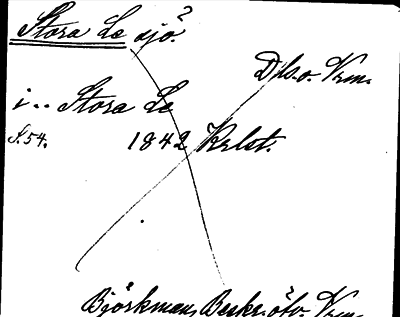 Stora Le sjö?
Dls. o. Vrm.
i .. Stora Le
S. 54. 1842 Krlst.
Björkman, Beskr. öfv. Vrm.